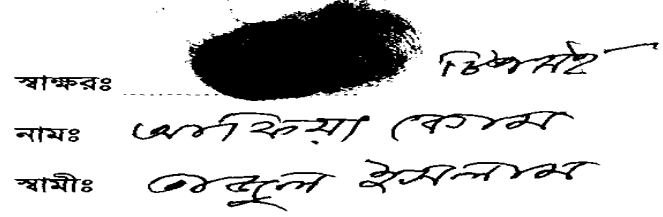 স্বাক্ষরঃ টিপসই
নামঃ আফিয়া বেগম
স্বামীঃ তাজুল ইসলাম